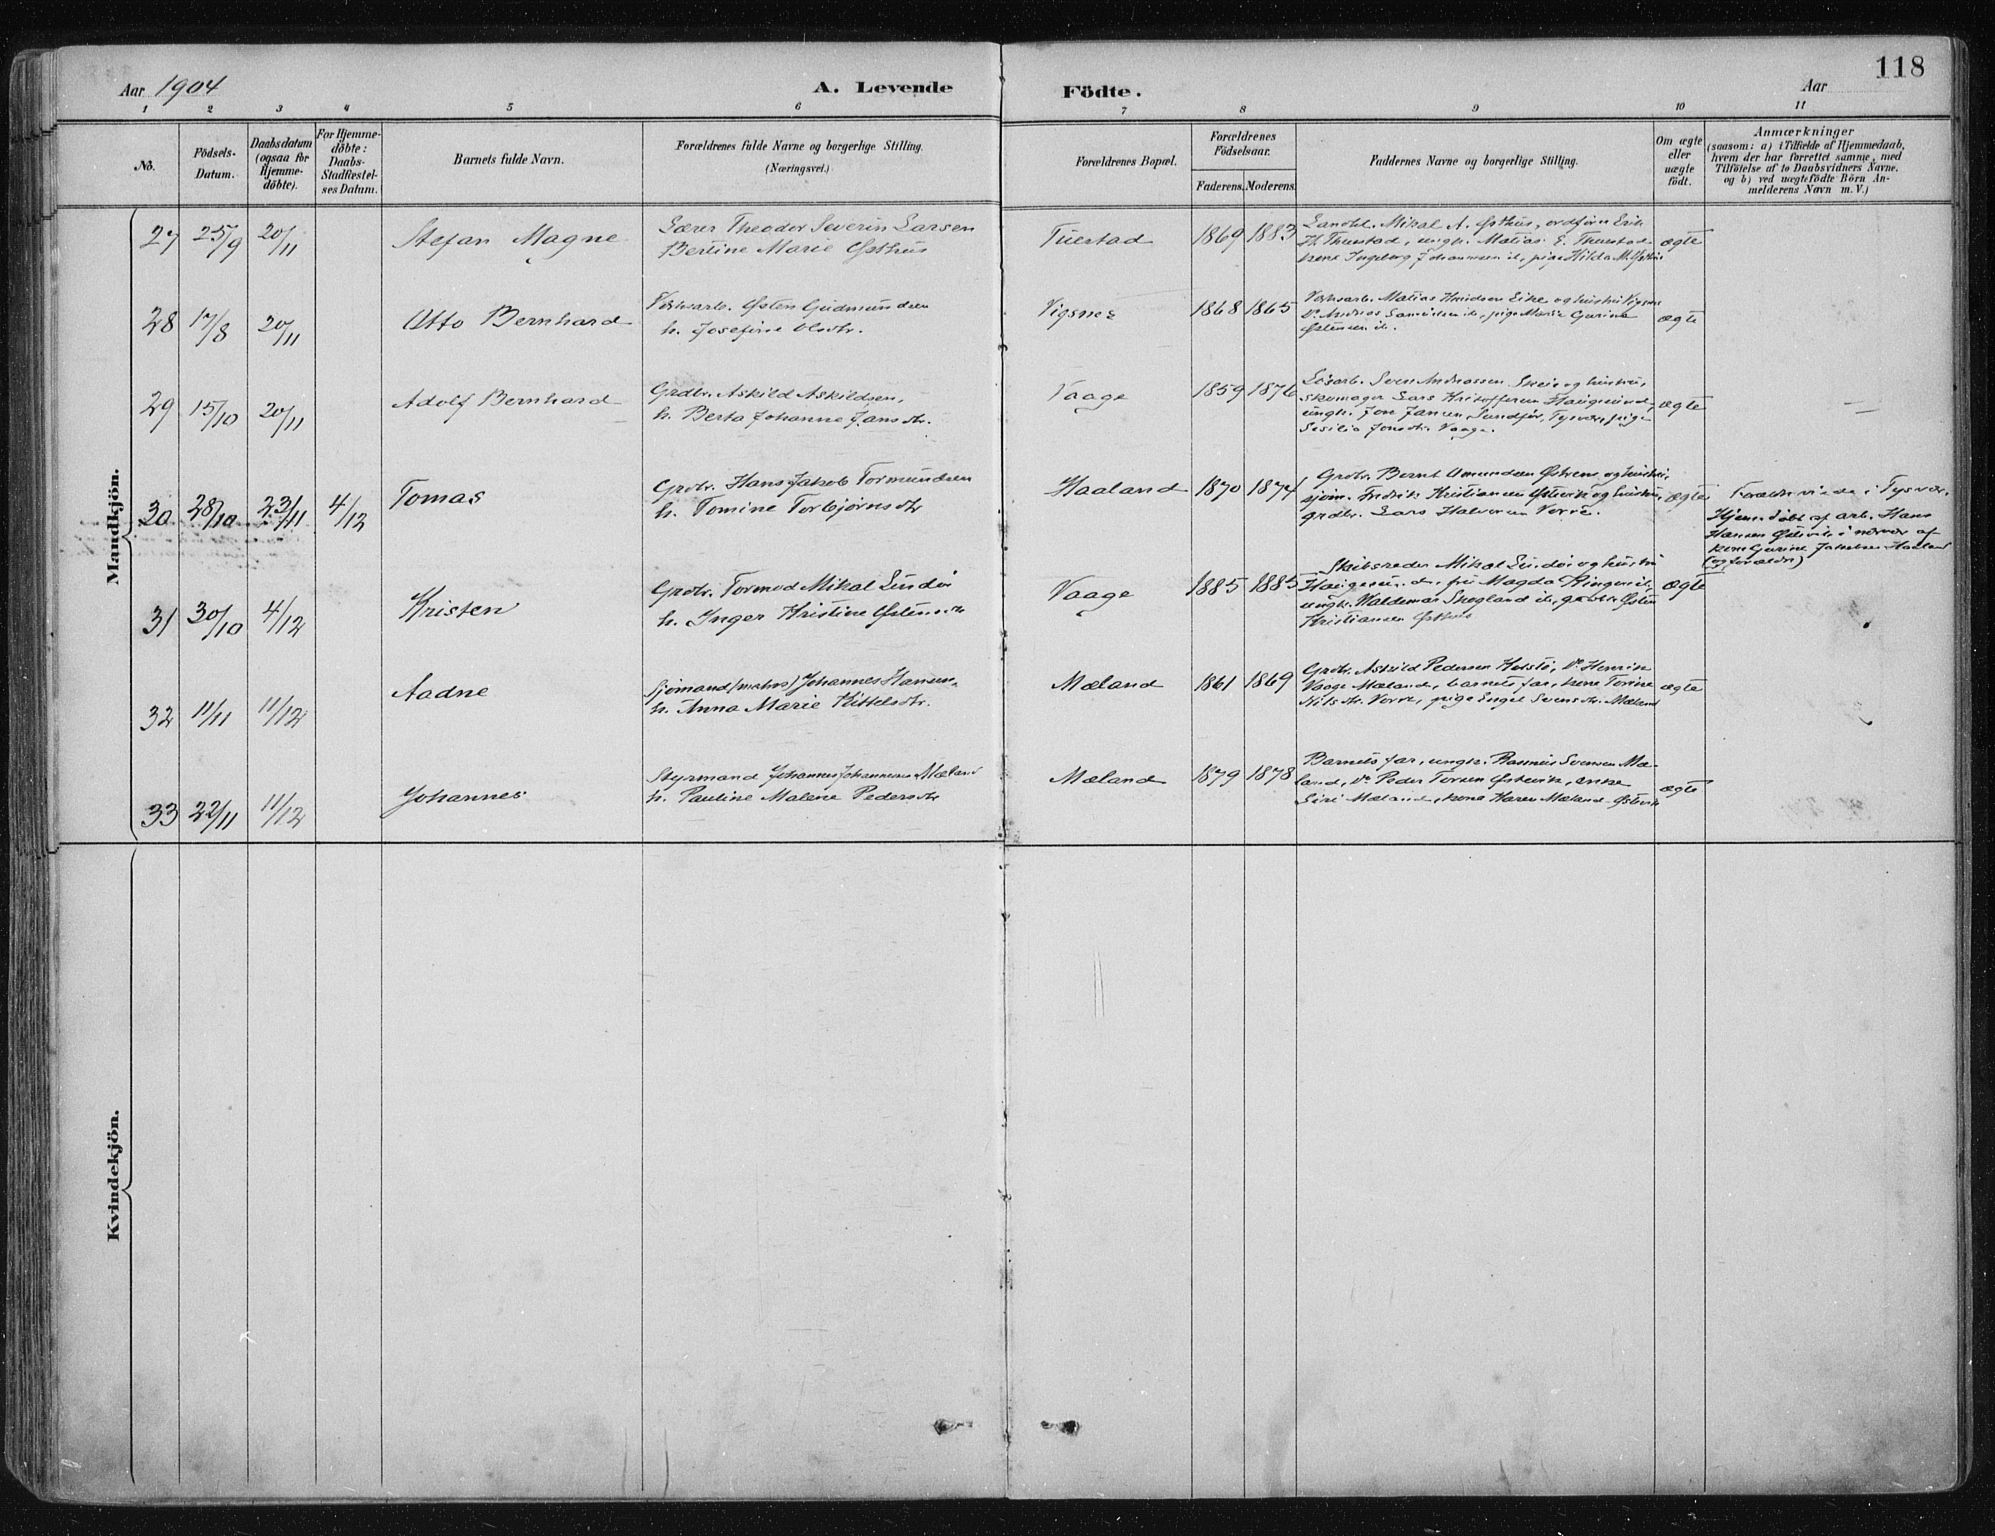 Aar 1904
A. Levende
Födte.
Aar
118
1 2 3 4 5 6 7 8 9 10 11
No.
Födsels-
Datum.
Daabsdatum
(ogsaa for
Hjemme-
döbte).
For Hjemme-
döbte:
Daabs-
Stadfæstel-
ses Datum.
Barnets fulde Navn.
Forældrenes fulde Navne og borgerlige Stilling.
(Næringsvei.)
Forældrenes Bopæl.
Forældrenes
Födselsaar.
Faderens. Moderens.
Faddernes Navne og borgerlige Stilling.
Om ægte
eller
uægte
födt.
Anmærkninger
(saasom: a) i Tilfælde af Hjemmedaab,
hvem der har forrettet samme, med
Tilföielse af to Daabsvidners Navne.
og b) ved uægtefödte Börn An-
melderens Navn m. V.)
Mandkjön.
27 25/9 20/11 Stefan Magne
Lærer Theodor Severin Larsen
Bertine Marie Østhus
Tuestad 1869 1883
Landhl. Mikal A. Østhus, ordfører Erik
Th. Thuestad, ungk. Matias E. Thuestad
kone Ingeborg Johannesen ib., pige Hilda M. Østhus
ægte
28 17/8 20/11 Otto Bernhard
Verksarb. Østen Gudmundsen
h. Josefine Olsdtr.
Vigsnes 1868 1865
Verksarb. Matias Knudsen Eike og hustru Vigsnes
Do Andreas Samuelsen ib., pige Marie Gurine
Østensen ib.
ægte
29 15/10 20/11 Adolf Bernhard
Grdbr. Askild Askildsen,
h. Berta Johanne Jansdtr.
Vaage 1859 1876
Løsarb. Sven Andreassen Skeie og hustru,
skomager Lars Kristoffersen Haugesund,
ungk. Jon Jansen, Sundfør, Tysvær, pige
Sesilia Jonsdtr. Vaage.
ægte
30 28/10 23/11 4/12 Tomas
Grdbr. Hans Jakob Tormundsen
h. Tomine Torbjørnsdtr
Haaland 1870 1874
Grdbr. Bernt Amundsen Østrem og hustru,
sjøm. Fredrik Kristiansen Østevik og hustru,
grdbr. Lars Halvorsen Vorre.
ægte
Forældr viede i Tysvær.
Hjem. døbt af arb. Hans
Hansen Østevik i nærvær af
kone Gurine Jakobsen Haaland
(og forældre)
31 30/10 4/12 Kristen
Grdbr. Tormod Mikal Lindøe
h. Inger Kristine Østensdtr
Vaage 1885 1885
Skibsreder Mikal Lindøe og hustru
Haugesund, frk Magda Ringen ib.,
ungk. Waldemar Skogland ib, grdbr. Østen
Kristiansen Østhus
ægte
32 11/11 11/12 Aadne
Sjømand (matros) Johannes Hansen,
h. Anna Marie Kittelsdtr.
Mæland 1861 1869
Grdbr. Askild Pedersen Hetstø, Do Henrik
Vaage Mæland, barnets far, kone Tomine
Nilsdtr. Vorre, pige Engel Svensdtr. Mæland
ægte
33 22/11 11/12 Johannes
Styrmand Johannes Johannesen Mæland
h. Pauline Malene Pedersdtr
Mæland 1879 1878
Barnets far, ungk. Rasmus Svensen Mæ-
land, Do Peder Torsen Østevik, enke
Siri Mæland, kone Karen Mæland Østevik
ægte
Kvindekjön.